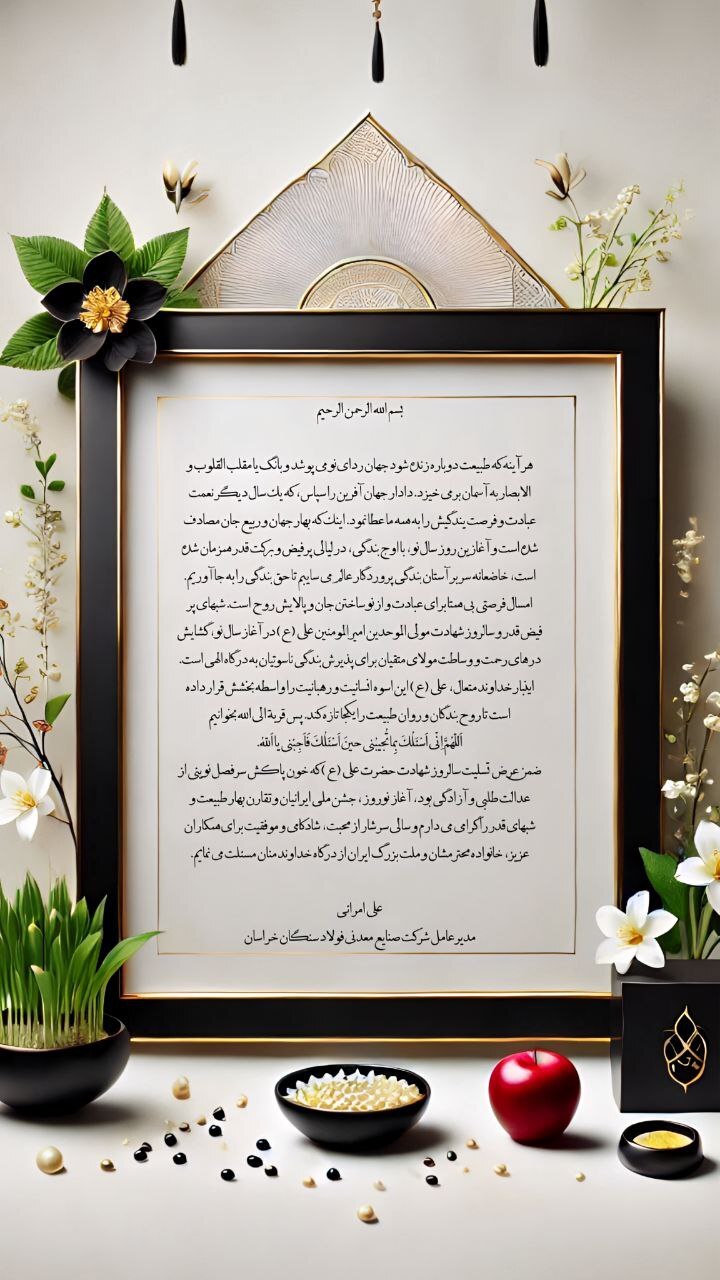 بسم الله الرحمن الرحیم
هر آینه که طبیعت دوباره زنده شود جهان ردای نو می پوشد و بانگ یا مقلب القلوب و
الابصار به آسمان بر می خیزد. دادار جهان آفرین را سپاس، که یک سال دیگر نعمت
عبادت و فرصت بندگیش را به همه ما عطا نمود. اینک که بهار جهان و ربیع جان مصادف
شده است و آغازین روز سال نو، با اوج بندگی، در لیالی پر فیض و برکت قدر همزمان شده
است، خاضعانه سر بر آستان بندگی پروردگار عالم می ساییم تا حق بندگی را به جا آوریم.
امسال فرصتی بی همتا برای عبادت و از نو ساختن جان و پالایش روح است. شبهای پر
فیض قدر و سالروز شهادت مولی الموحدین امیرالمومنین علی (ع) در آغاز سال نو، گشایش
درهای رحمت و وساطت مولای متقیان برای پذیرش بندگی ناسوتیان به درگاه الهی است.
اینبار خداوند متعال، علی (ع) این اسوه انسانیت و رهبانیت را واسطه بخشش قرار داده
است تا روح بندگان و روان طبیعت را یکجا تازه کند. پس قربة الی الله بخوانیم
اَللّهُمَّ اِنّی اَسْئَلُكَ بِما تُجیبُنی حینَ اَسْئَلُكَ فَاَجِبْنی یا اَللهُ.
ضمن عرض تسلیت سالروز شهادت حضرت علی (ع) که خون پاکش سرفصل نوینی از
عدالت طلبی و آزادگی بود، آغاز نوروز، جشن ملی ایرانیان و تقارن بهار طبیعت و
شبهای قدر را گرامی می دارم و سالی سرشار از محبت، شادکامی و موفقیت برای همکاران
عزیز، خانواده محترمشان و ملت بزرگ ایران از درگاه خداوند منان مسئلت می نمایم.
علی امرانی
مدیر عامل شرکت صنایع معدنی فولاد سنگان خراسان